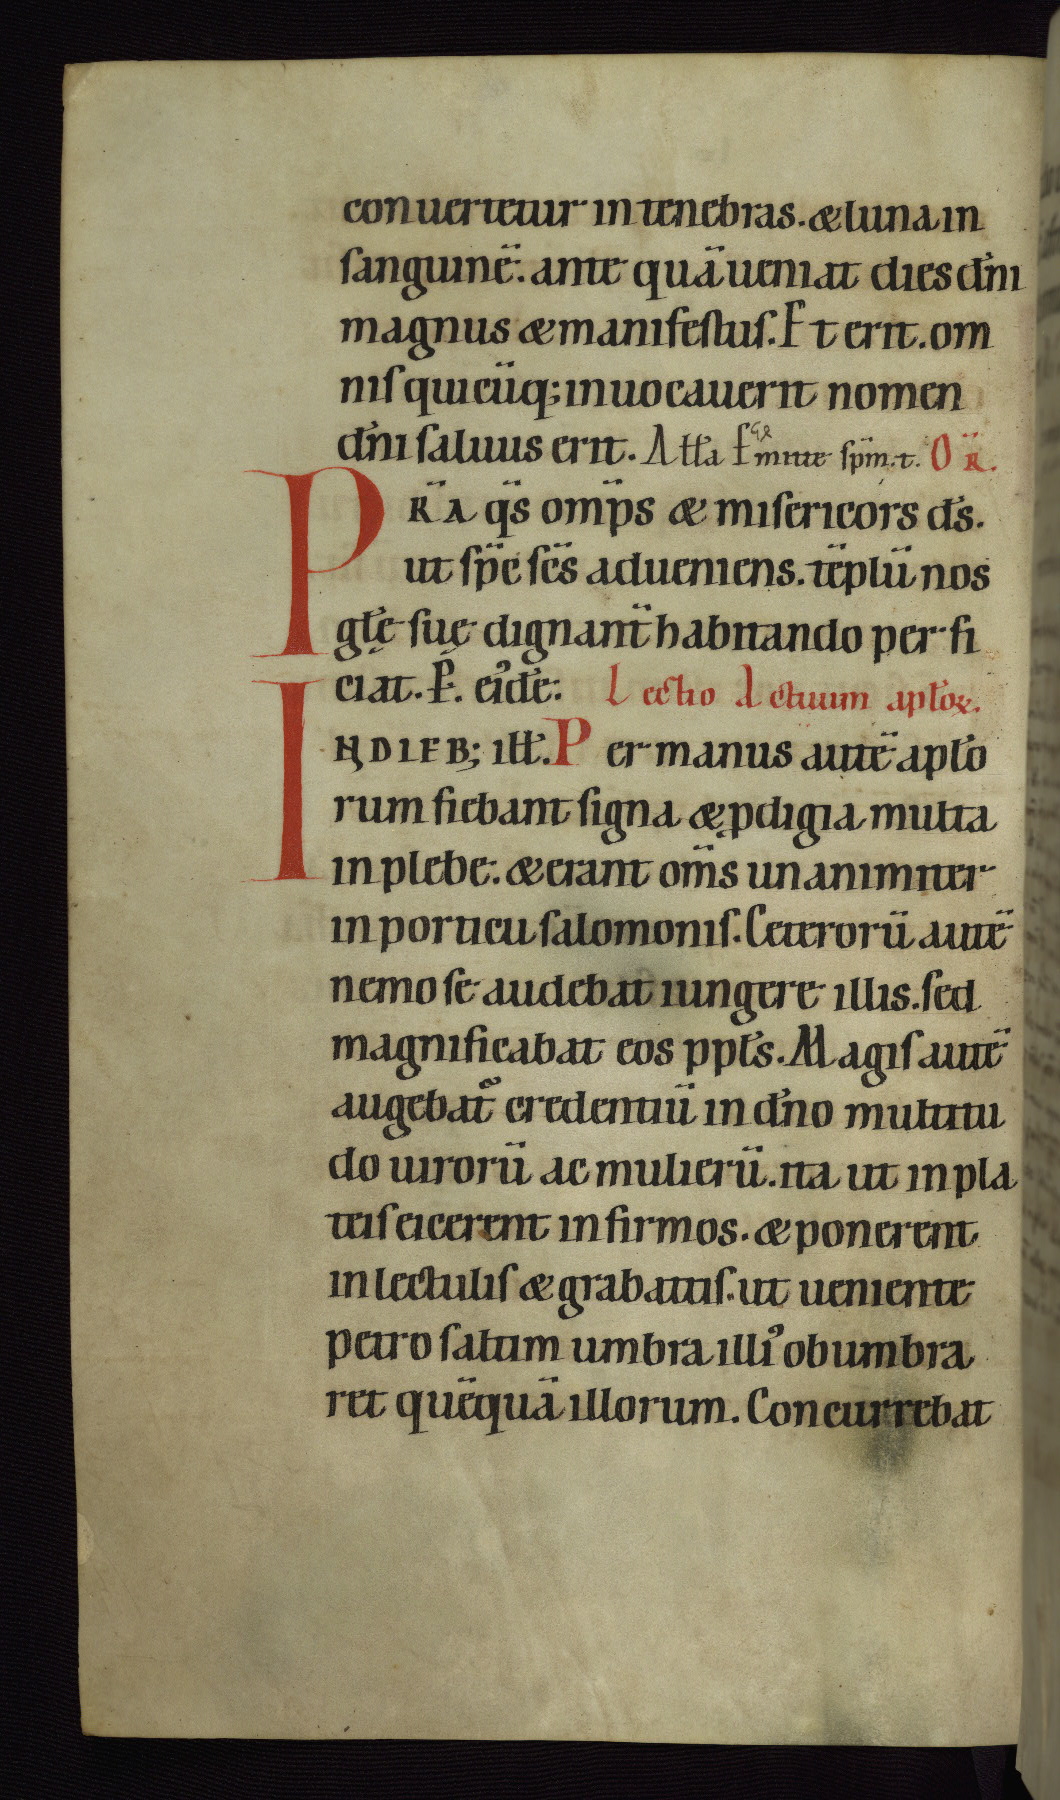 conuertetur in tenebras. & luna in
sanguinē. ante quā ueniat dies dn̄i
magnus & manifestus. Et erit. om
nis quicūq; inuocauerit nomen
dn̄i saluus erit. Atła Emitte sp̄m. t. OR̄.
PR̄A qs̄ omp̄s & misericors ds̄.
ut sp̄c sc̄s adueniens. tēplū nos
głę suę dignant̄ habitando perfi
ciat. P. eiꝰdē. Lectio Actuum aplōꝝ.
IN DIEB; iłł. Per manus autē aplō
rum fiebant signa & ꝓdigia multa
in plebe. & erant om̄s unanimiter
in porticu salomonis. Ceterorū autē
nemo se audebat iungere illis. sed
magnificabat eos ppłs. Magis autē
augebat᷑ credentiū in dn̄o multitu
do uirorū ac mulierū. ita ut in pla
teis eicerent infirmos. & ponerent
in lectulis & grabattis. ut ueniente
petro saltim umbra illiꝰ obumbra
ret quēquā illorum. Concurrebat